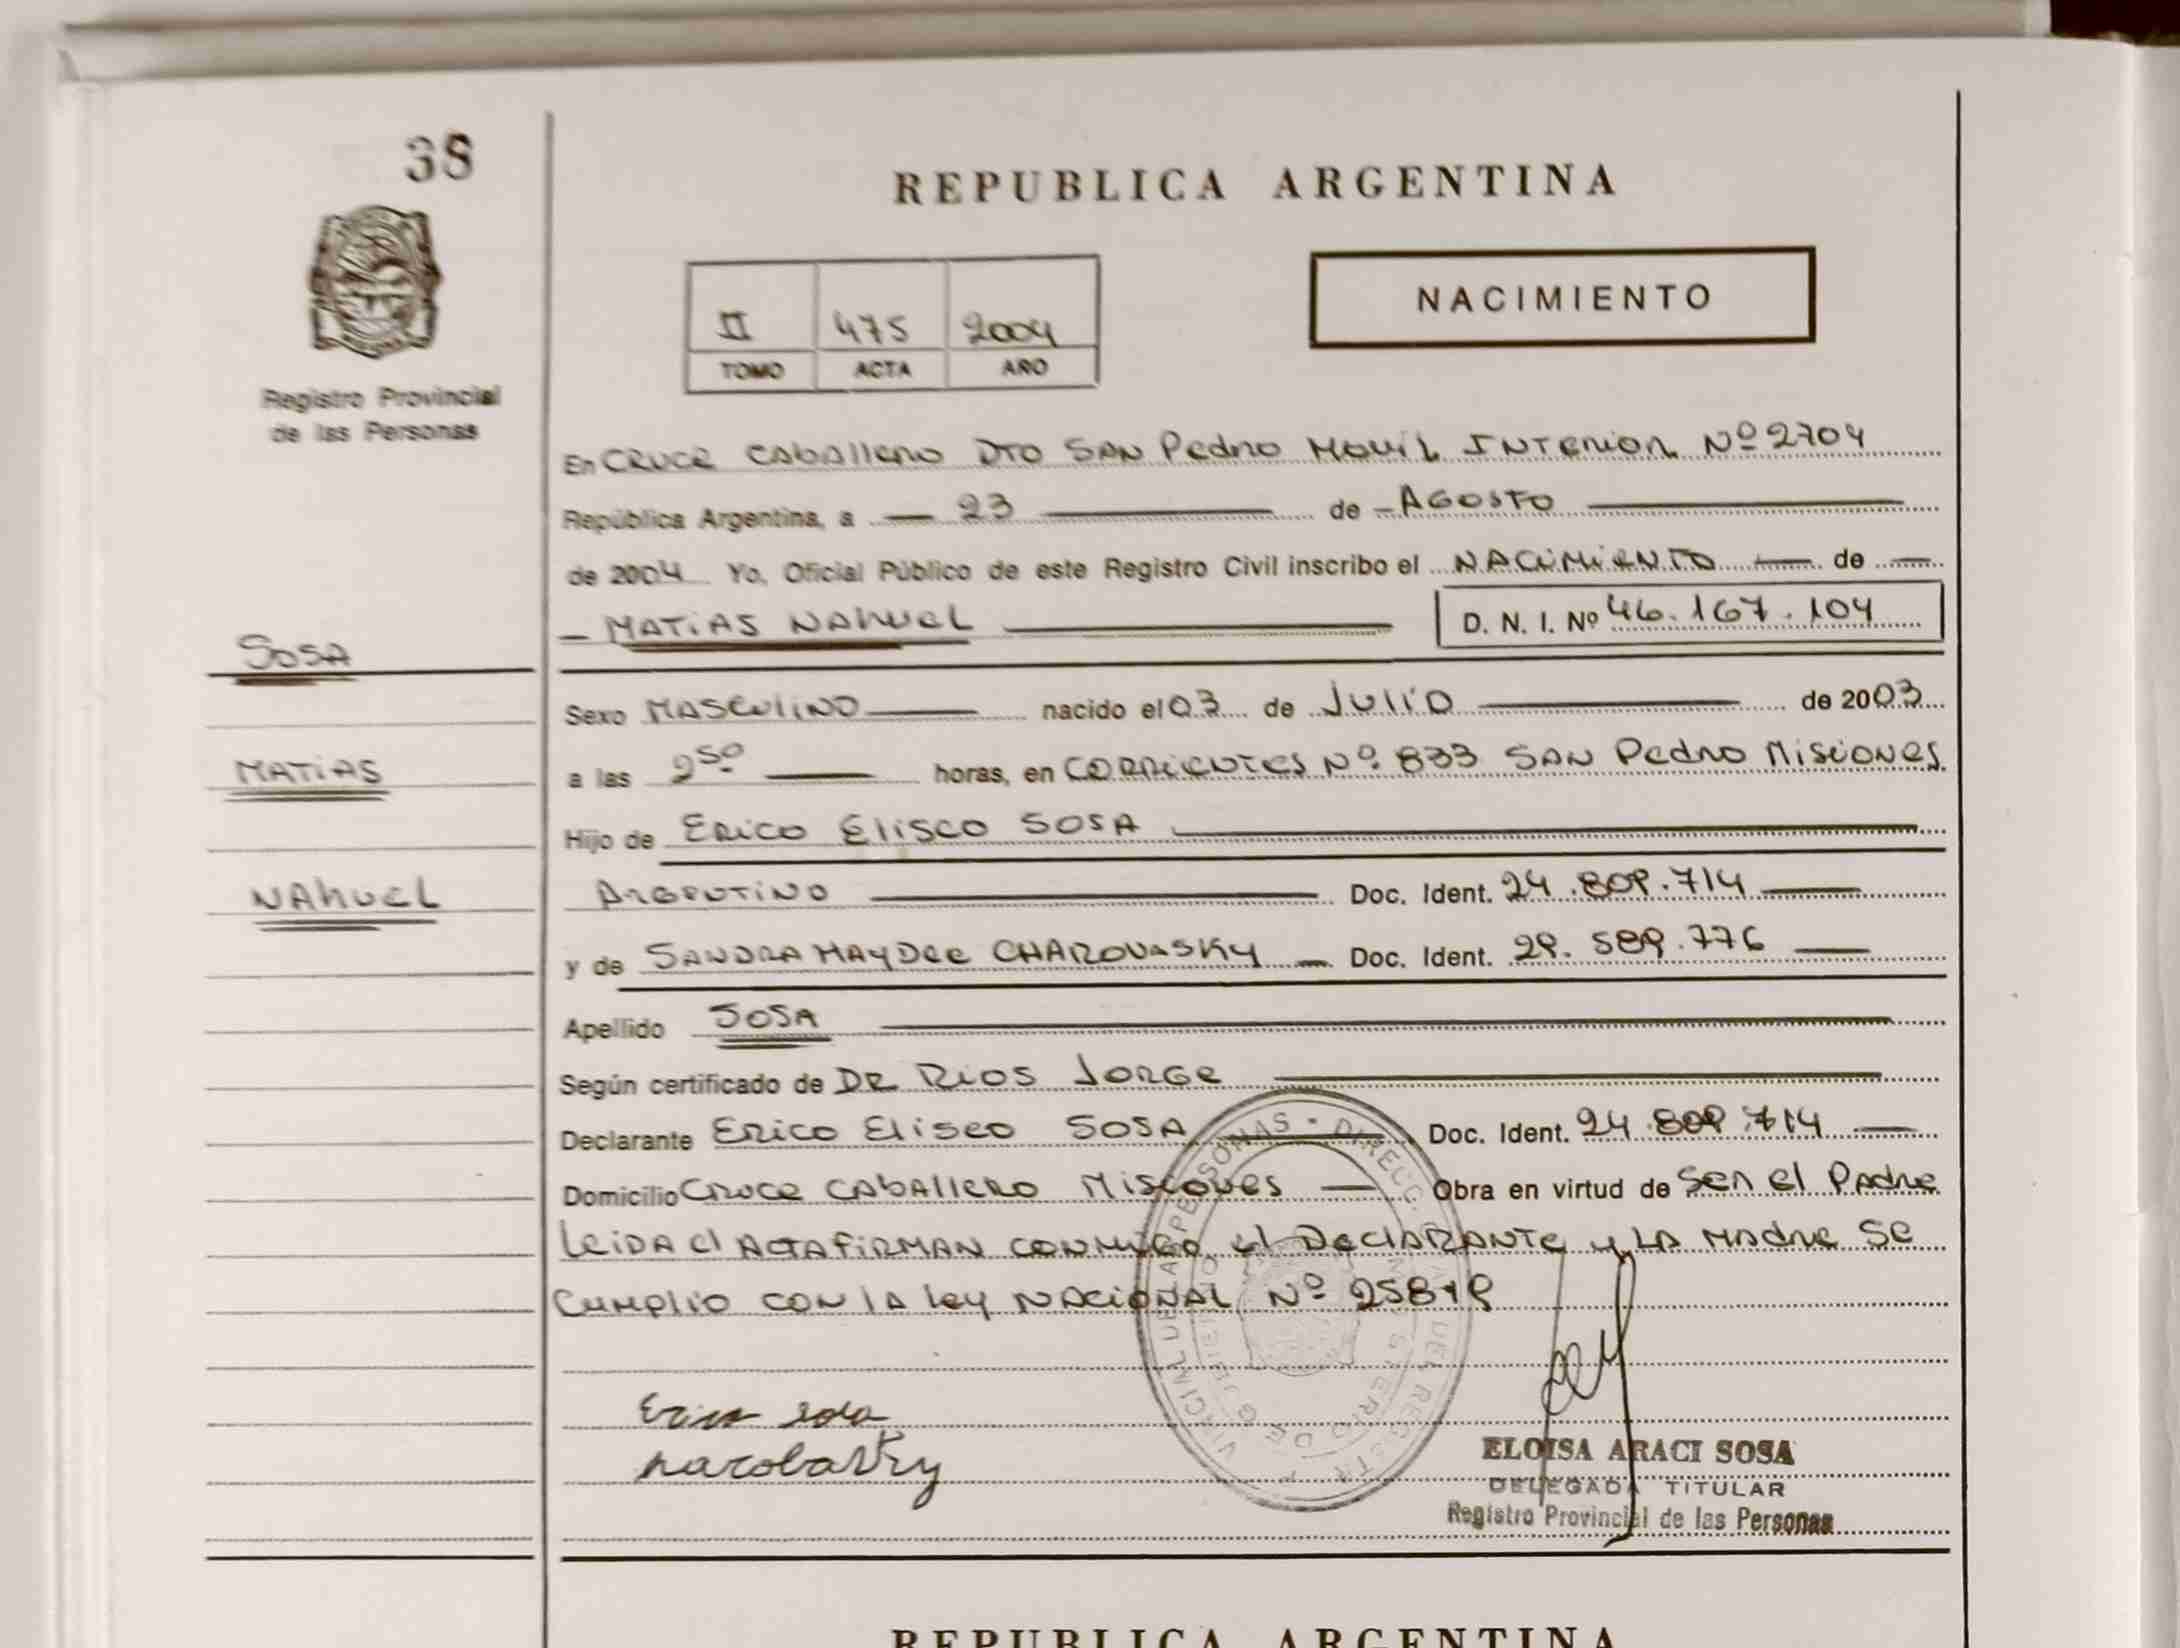 38
REPUBLICA ARGENTINA
NACIMIENTO
II 475 2004
TOMO ACTA AÑO
Registro Provincial
de las Personas
En CRUCE CABAllERO DTO SAN PEDRO MOVIL INTERIOR Nº 2704
República Argentina, a 23 de AGOSTO
de 2004 Yo, Oficial Público de este Registro Civil inscribo el NACIMIENTO de
MATIAS NAHUEL D. N. I. Nº 46.167.104
SOSA
Sexo MASCULINO nacido el 03 de JULIO de 2003
MATIAS
a las 2 50 horas, en CORRIENTES Nº 833 SAN PEDRO MISIONES
Hijo de ERICO ELISEO SOSA
NAHUEL
ARGENTINO Doc. Ident. 24.809.714
y de SANDRA HAYDEE CHAROVASKY Doc. Ident. 29.589.776
Apellido SOSA
Según certificado de DR RIOS JORGE
Declarante ERICO ELISEO SOSA Doc. Ident. 24.809.714
Domicilio CRUCE CABALLERO MISIONES Obra en virtud de SER EL PADRE
LEIDA El ACTA FIRMAN CONMIGO El DECLARANTE y LA MADRE SE
CUMPLIO CON LA LEY NACIONAL Nº 25819
ELOISA ARACI SOSA
DELEGADA TITULAR
Registro Provincial de las Personas
REPUBLICA ARGENTINA